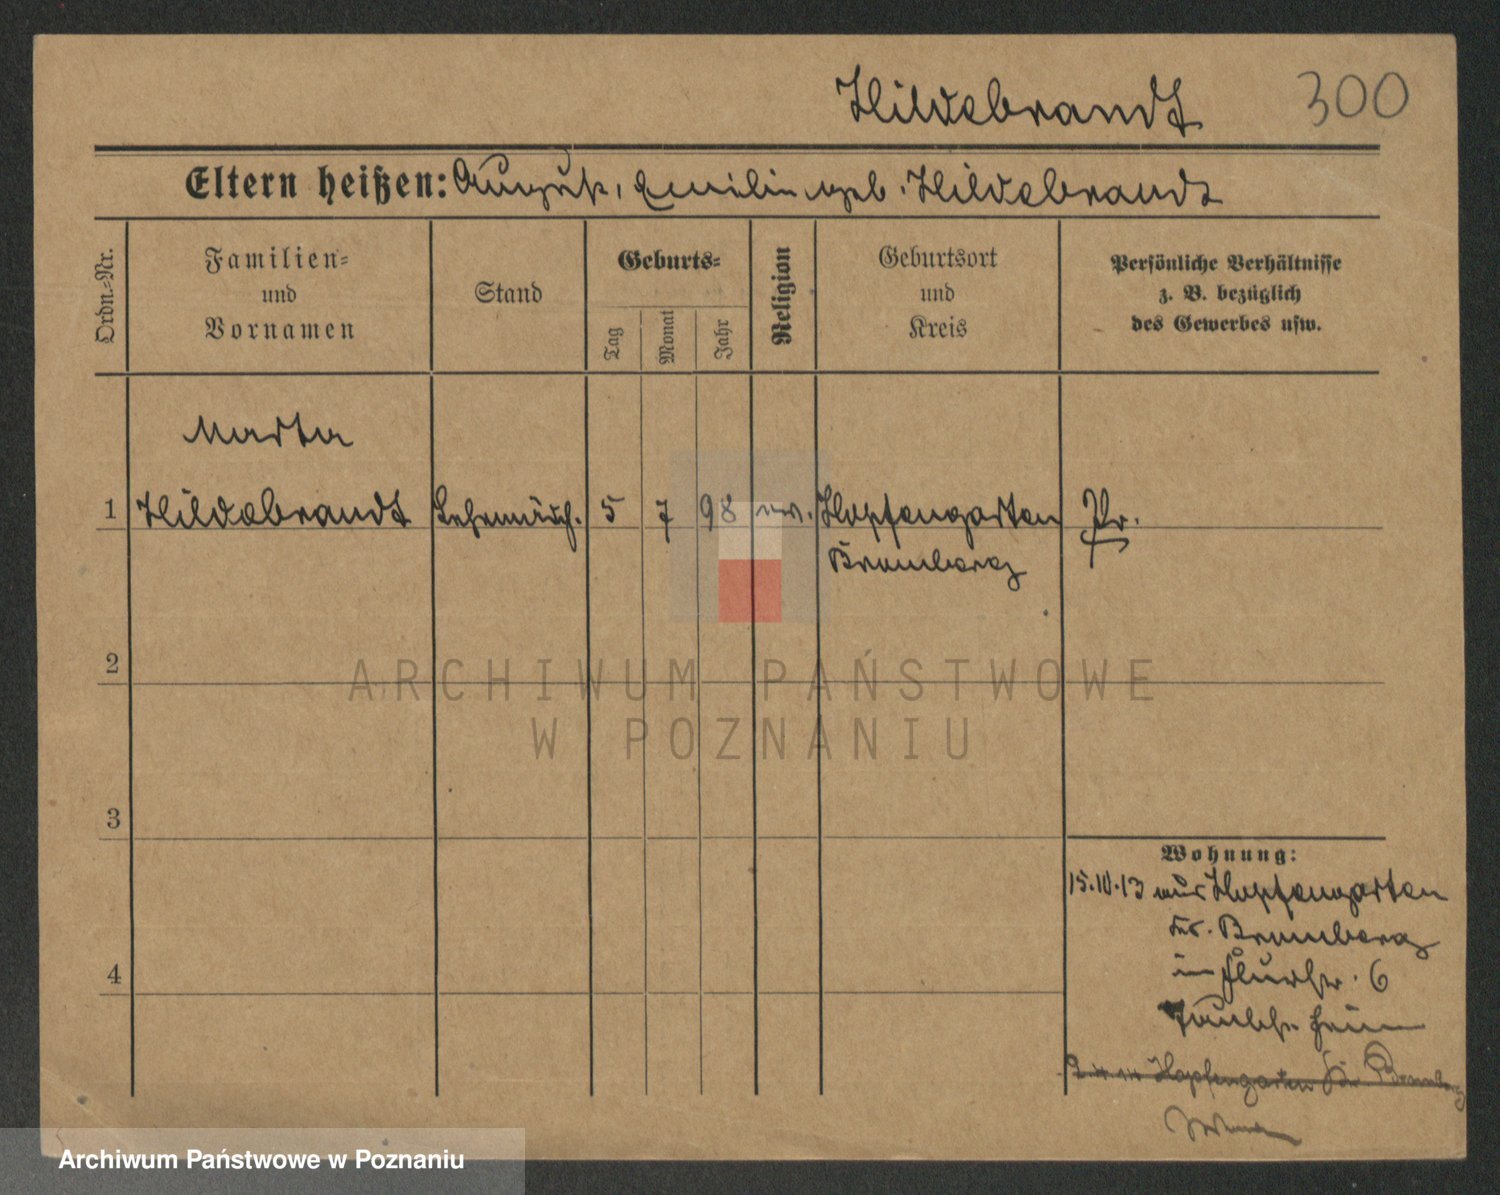 Hildebrandt 300
Eltern heißen: August, Emilie geb. Hildebrandt
Ordn.-Nr.
Familien-
und
Vornamen
Stand
Geburts-
Tag
Monat
Jahr
Religion
Geburtsort
und
Kreis
Persönliche Verhältnisse
z. B. bezüglich
des Gewerbes usw.
Marta
1 Hildebrandt 5 7 98 ev. Hopfengarten Pr.
Bromberg
2
ARCHIWUM PAŃSTWOWE
W POZNANIU
3
Wohnung:
15.10.13 aus Hopfengarten
Kr. Bromberg
4
6
Hopfengarten Kr Bromberg
Archiwum Państwowe w Poznaniu